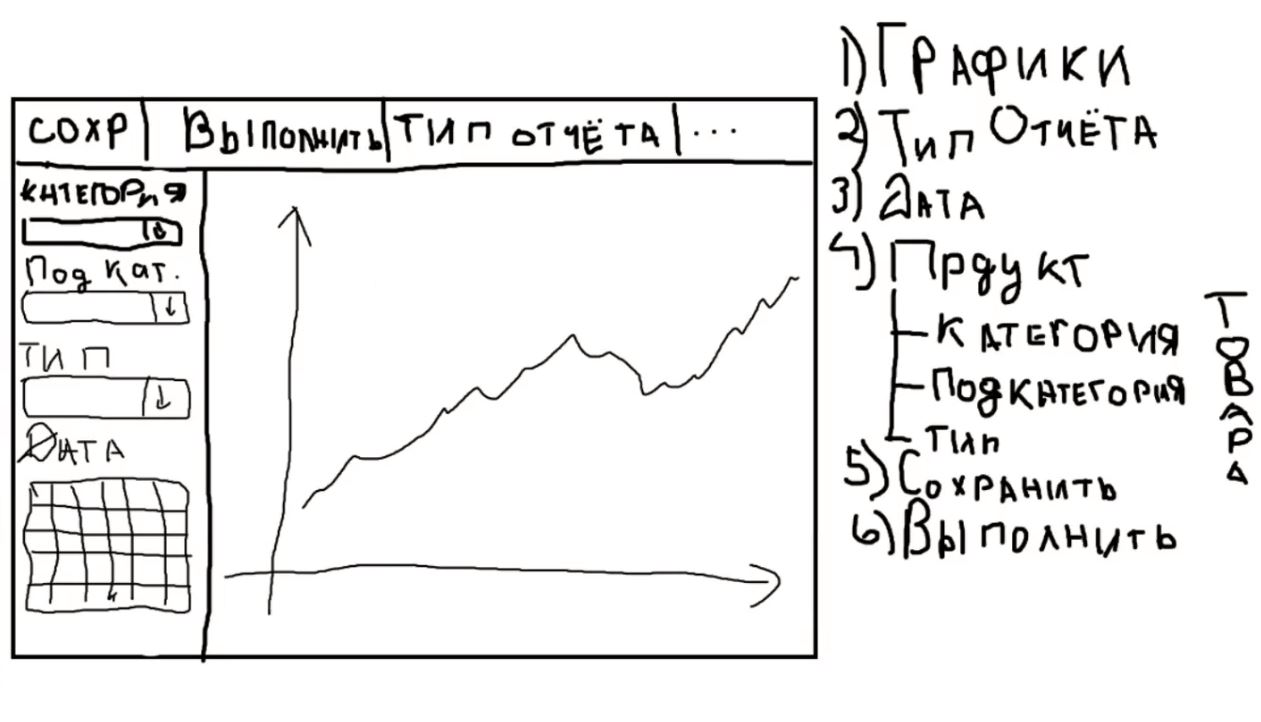 СОХР
ВЫПОЛНИТЬ
ТИП ОТЧЁТА
...
КАТЕГОРИЯ
Под кат.
ТИП
ДАТА
1) ГРАФИКИ
2) Тип Отчёта
3) Дата
4) Прдукт
КАТЕГОРИЯ
Подкатегория
Тип
ТОВАРА
5) Сохранить
6) Выполнить